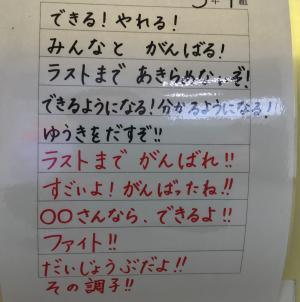 できる！やれる！
みんなと がんばる！
ラストまで あきらめないぞ！
できるようになる！分かるようになる！
ゆうきをだすぞ!!
ラストまで がんばれ!!
すごいよ！がんばったね!!
○○さんなら、できるよ!!
ファイト!!
だいじょうぶだよ!!
その調子!!